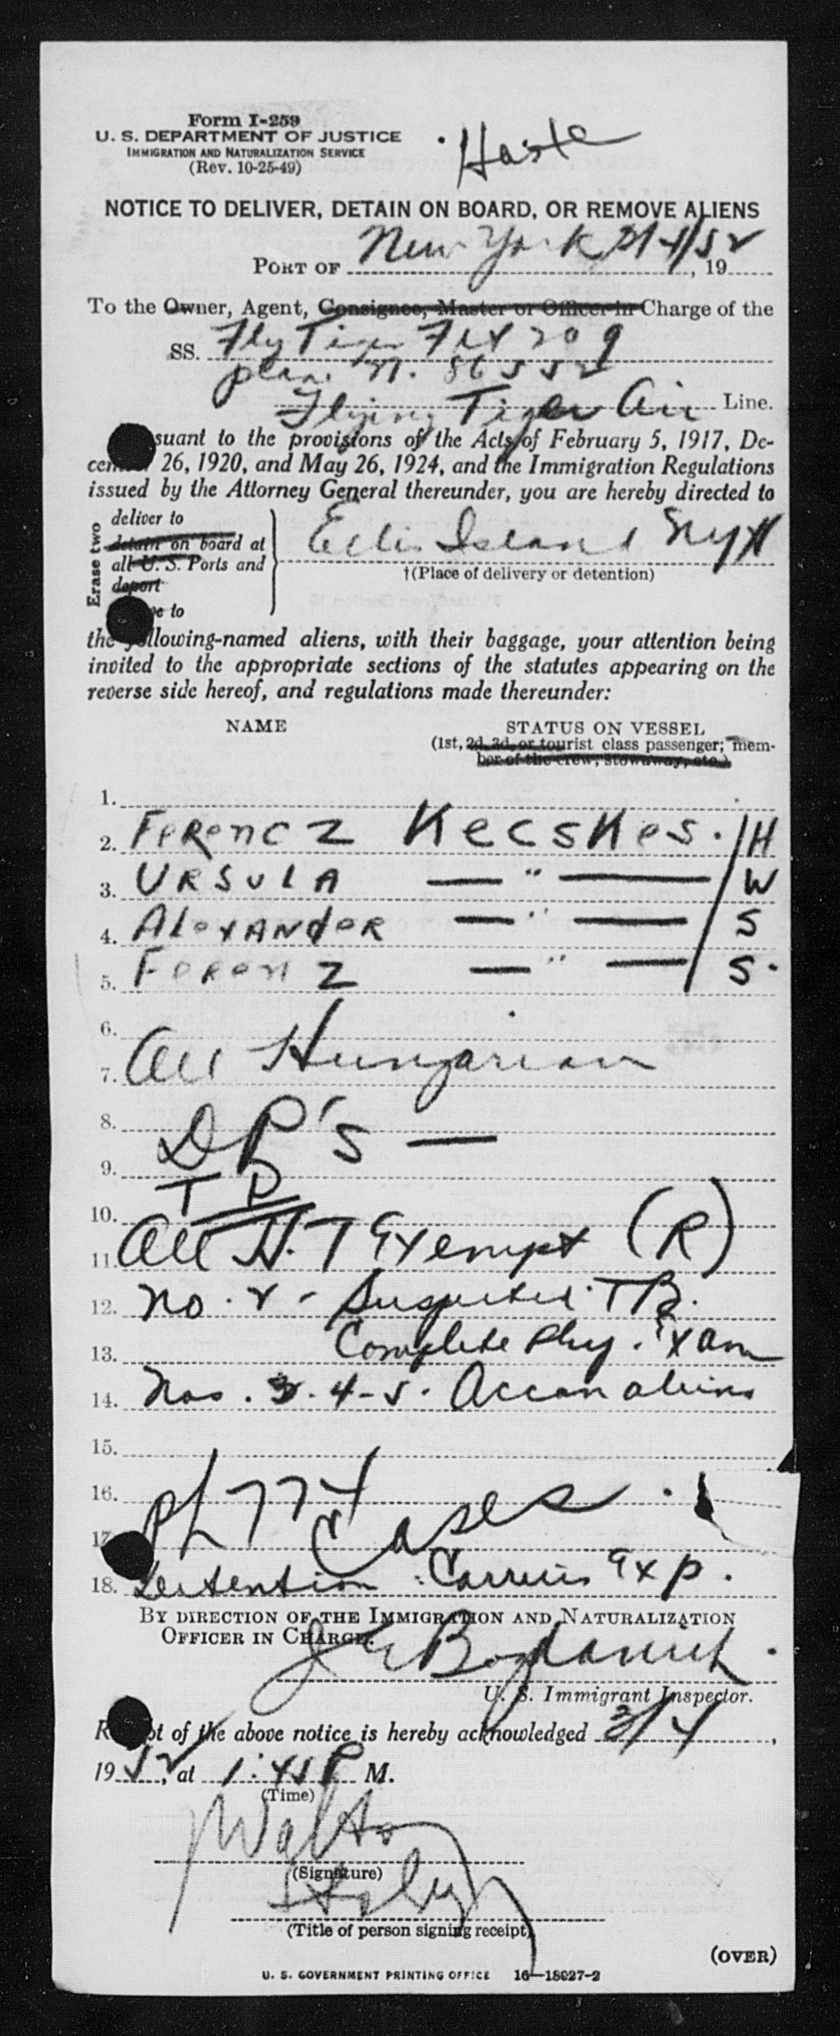 Form I-259
U. S. DEPARTMENT OF JUSTICE
IMMIGRATION AND NATURALIZATION SERVICE
(Rev. 10-25-49)
NOTICE TO DELIVER, DETAIN ON BOARD, OR REMOVE ALIENS
PORT OF New York, 3/4/52, 19
To the Owner, Agent, Consignee, Master or Officer in Charge of the
SS. Fly Tiger Flt 209
plane N. 86552
Flying Tiger Air Line.
suant to the provisions of the Acts of February 5, 1917, De-
cem 26, 1920, and May 26, 1924, and the Immigration Regulations
issued by the Attorney General thereunder, you are hereby directed to
Erase two
deliver to
detain on board at
all U. S. Ports and
deport
e to
Ellis Island
†(Place of delivery or detention)
the following-named aliens, with their baggage, your attention being
invited to the appropriate sections of the statutes appearing on the
reverse side hereof, and regulations made thereunder:
NAME STATUS ON VESSEL
(1st, 2d, 3d, or tourist class passenger; mem-
ber of the crew, stowaway, etc.)
1.
2. FeRencz KecsKes. /H
3. URSULA — " — /W
4. AlexANdeR — " — / S
5. FeRencz — " — / S.
6.
7. All Hungarian
8.
9. DP's —
10. TD
11. All H.T Exempt (R)
12. No. 2 - Suspected TB.
13. Complete Phy. Exam
14. Nos. 3. 4-5. Accom aliens
15.
16. PL 774
17. Cases.
18. Detention: Carriers Exp.
BY DIRECTION OF THE IMMIGRATION AND NATURALIZATION
OFFICER IN CHARGE.
U. S. Immigrant Inspector.
R t of the above notice is hereby acknowledged 3/4,
1952, at 1:45 P M.
(Time)
(Signature)
(Title of person signing receipt)
(OVER)
U. S. GOVERNMENT PRINTING OFFICE 16—18927-2